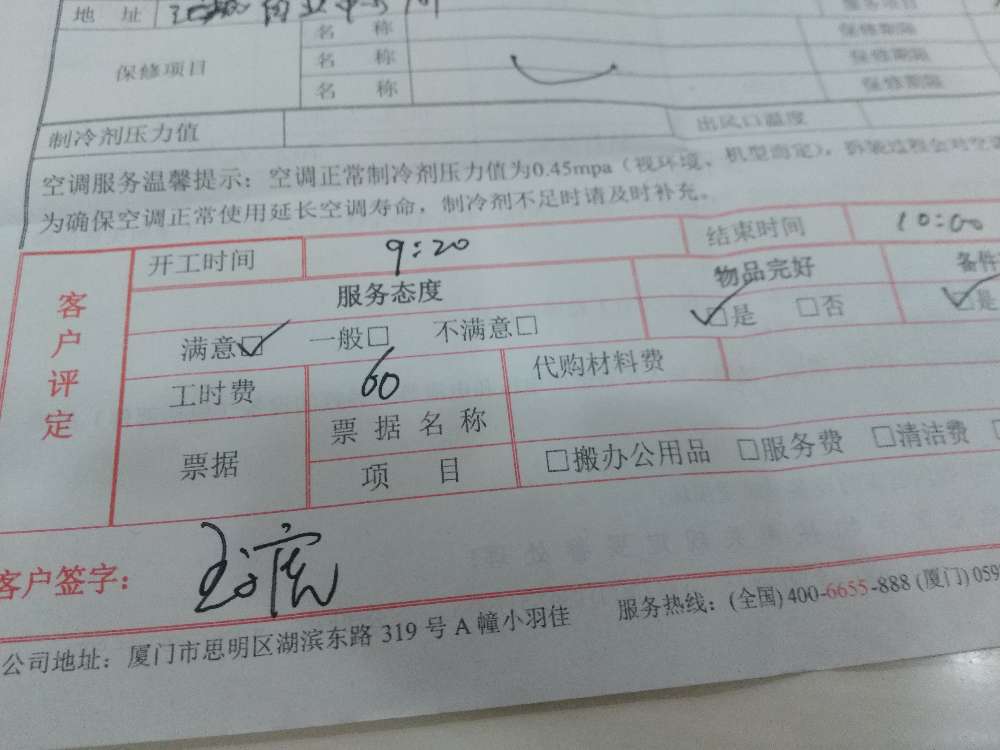 地 址
服务项目
保修项目 名 称 保修期限
名 称 保修期限
名 称 保修期限
制冷剂压力值 出风口温度
空调服务温馨提示：空调正常制冷剂压力值为0.45mpa（视环境、机型而定），拆装过程会对空
为确保空调正常使用延长空调寿命，制冷剂不足时请及时补充。
客户评定
开工时间 9:20 结束时间 10:00
服务态度 物品完好 备件
满意☑ 一般□ 不满意□ ☑是 □否 ☑是
工时费 60 代购材料费
票据 票据名称
项 目 □搬办公用品 □服务费 □清洁费
客户签字：
公司地址：厦门市思明区湖滨东路 319 号 A 幢小羽佳 服务热线：(全国) 400-6655-888 (厦门) 059